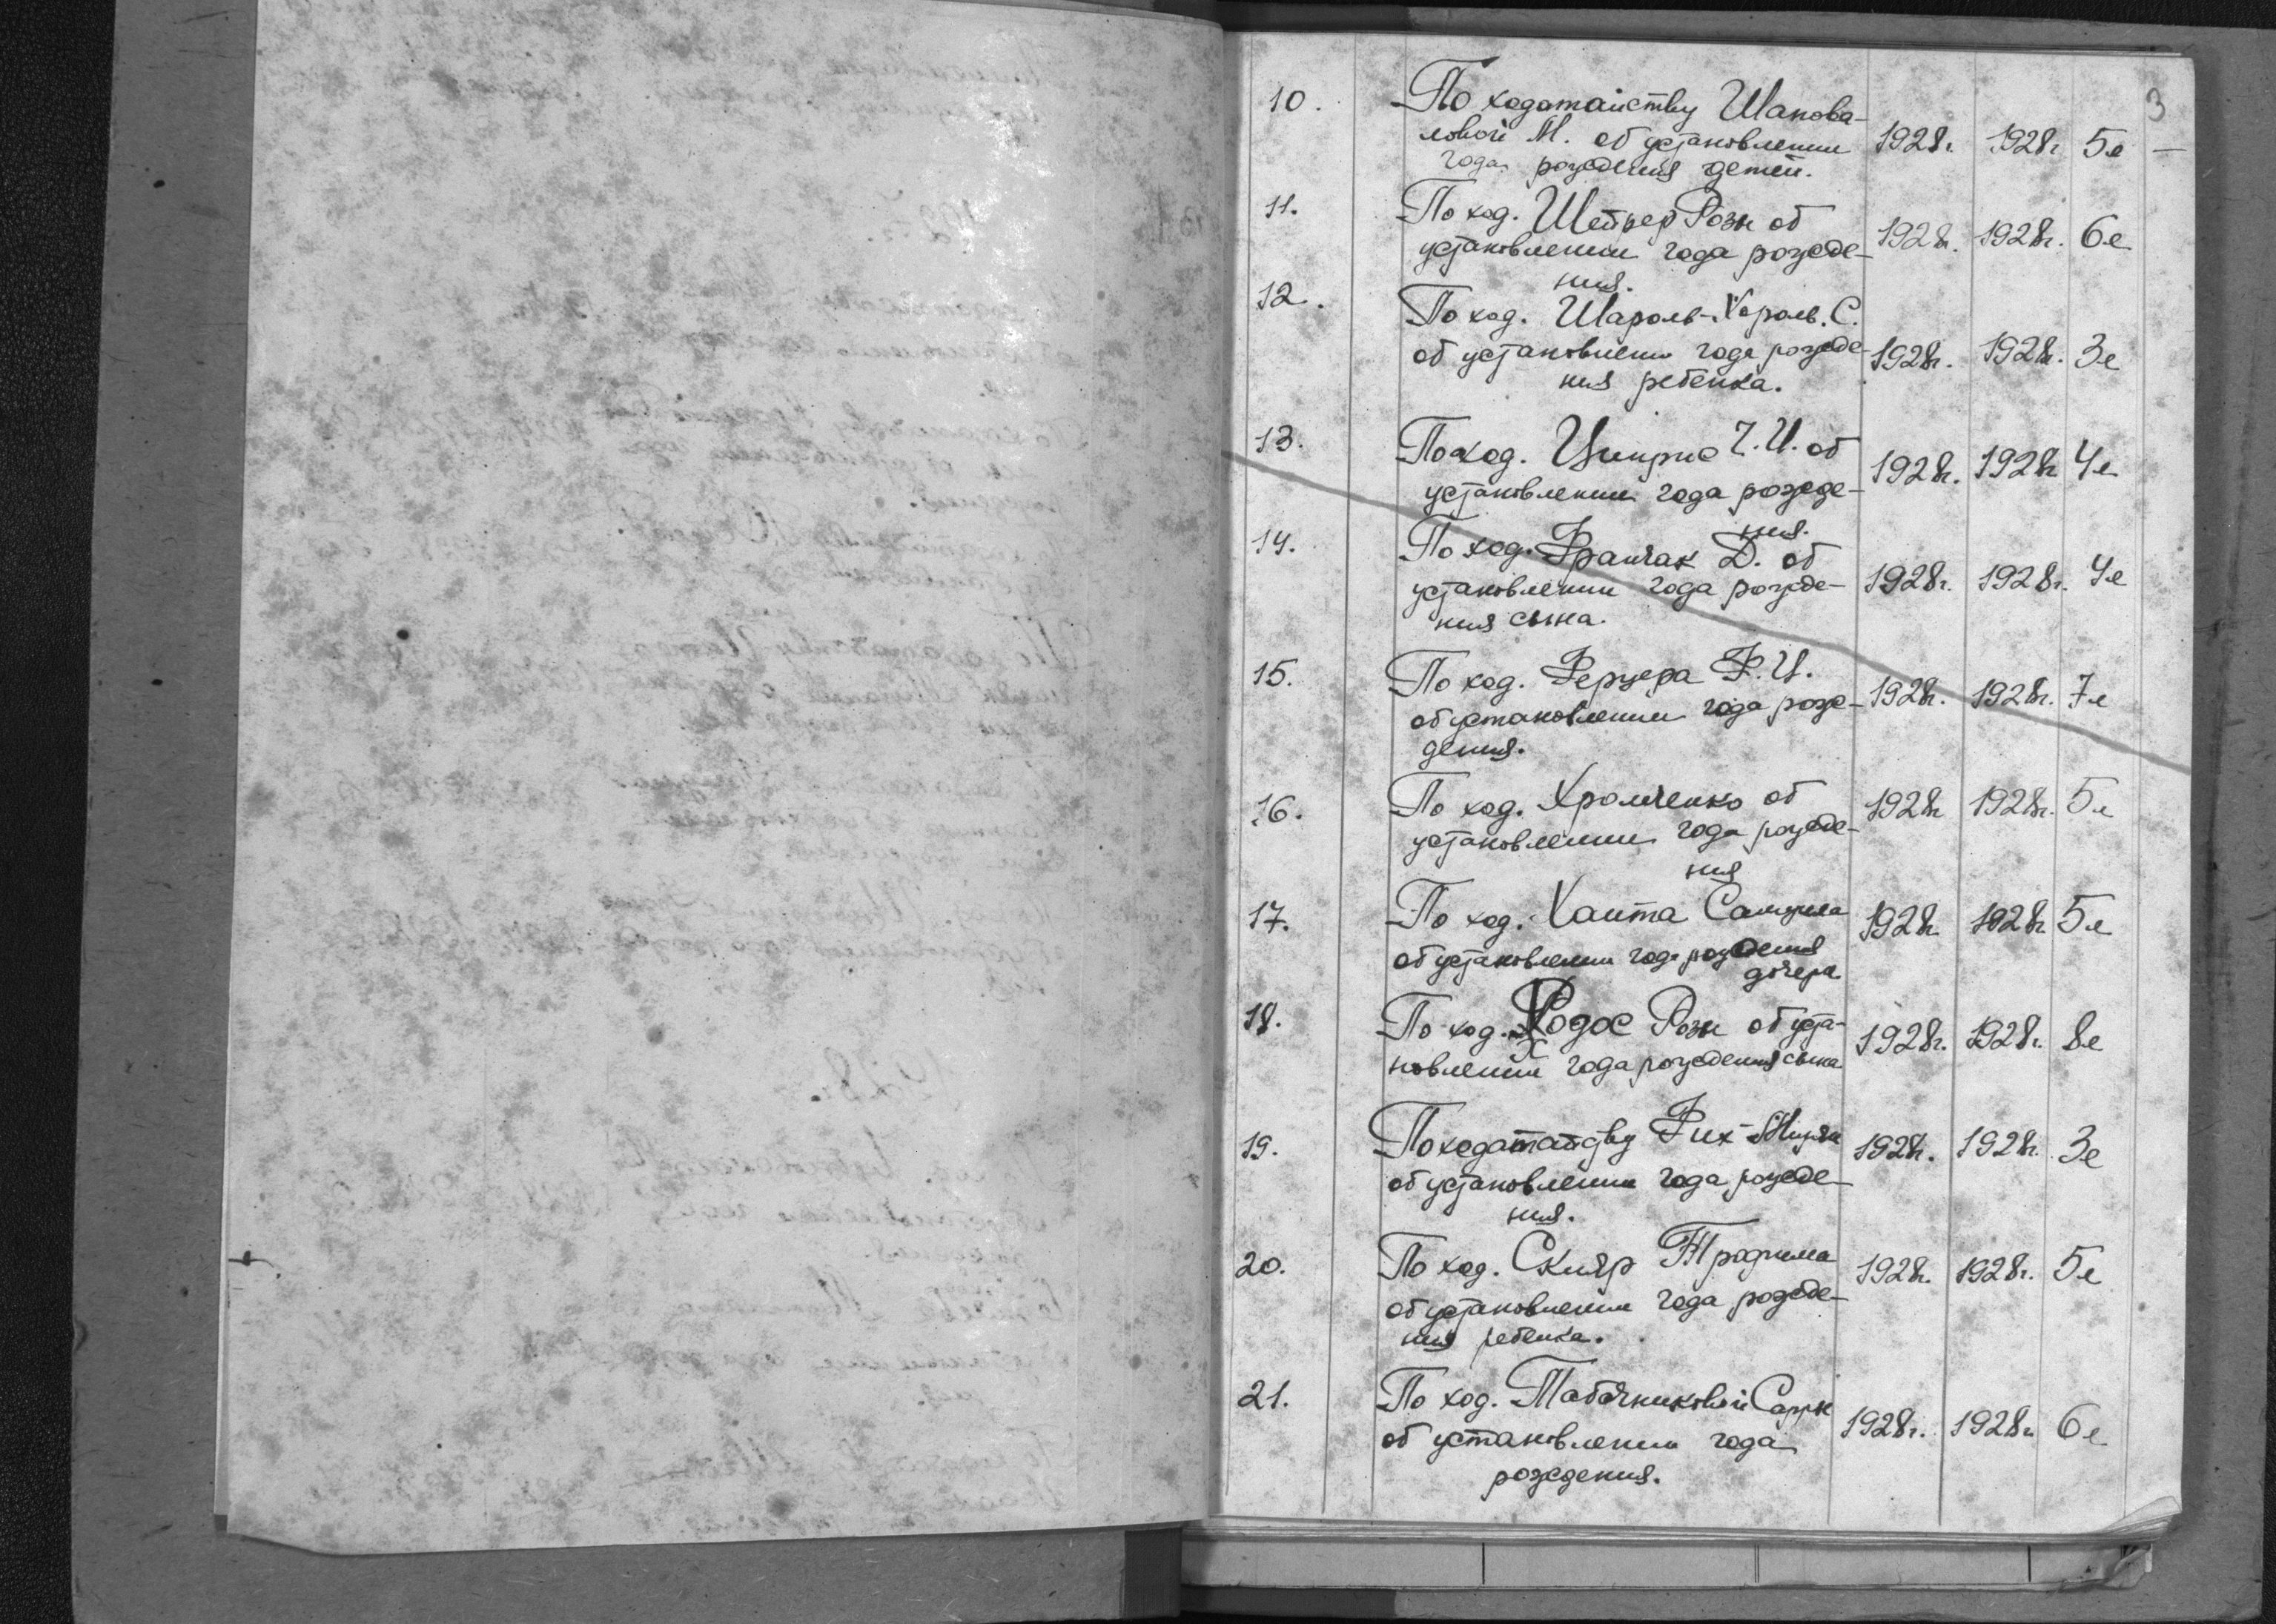 3
10. По ходатайству Шапова-
ловой М. об установлении 1928г. 1928г. 5л —
года рождения детей.
11. По ход. Шейнер Розы об
установлении года рожде- 1928г. 1928г. 6л
ния.
12. По ход. Шароль-Король. С.
об установлении года рожде- 1928г. 1928г. 3л
ния ребенка.
13. По ход. Циприс Г. И. об
установлении года рожде- 1928г. 1928г 4л
ния.
14. По ход. Франчак Д. об
установлении года рожде- 1928г. 1928г. 4л
ния сына.
15. По ход. Ферцера Ф. Ц.
об установлении года рож- 1928г. 1928г. 7л
дения.
16. По ход. Хромченко об 1928г 1928г. 5л
установлении года рожде-
ния
17. По ход. Хаита Самуила 1928г 1928г 5л
об установлении года рождения
дочери
18. По ход. Ходос Розы об уста-
новлении года рождения сына 1928г. 1928г. 8л
Х
19. По ходатайству Фих 1928г. 1928г. 3л
об установлении года рожде-
ния.
20. По ход. Скляр Трофима 1928г. 1928г. 5л
об установлении года рожде-
ния ребенка.
21. По ход. Табачниковой Сарры
об установлении года 1928г. 1928г. 6л
рождения.